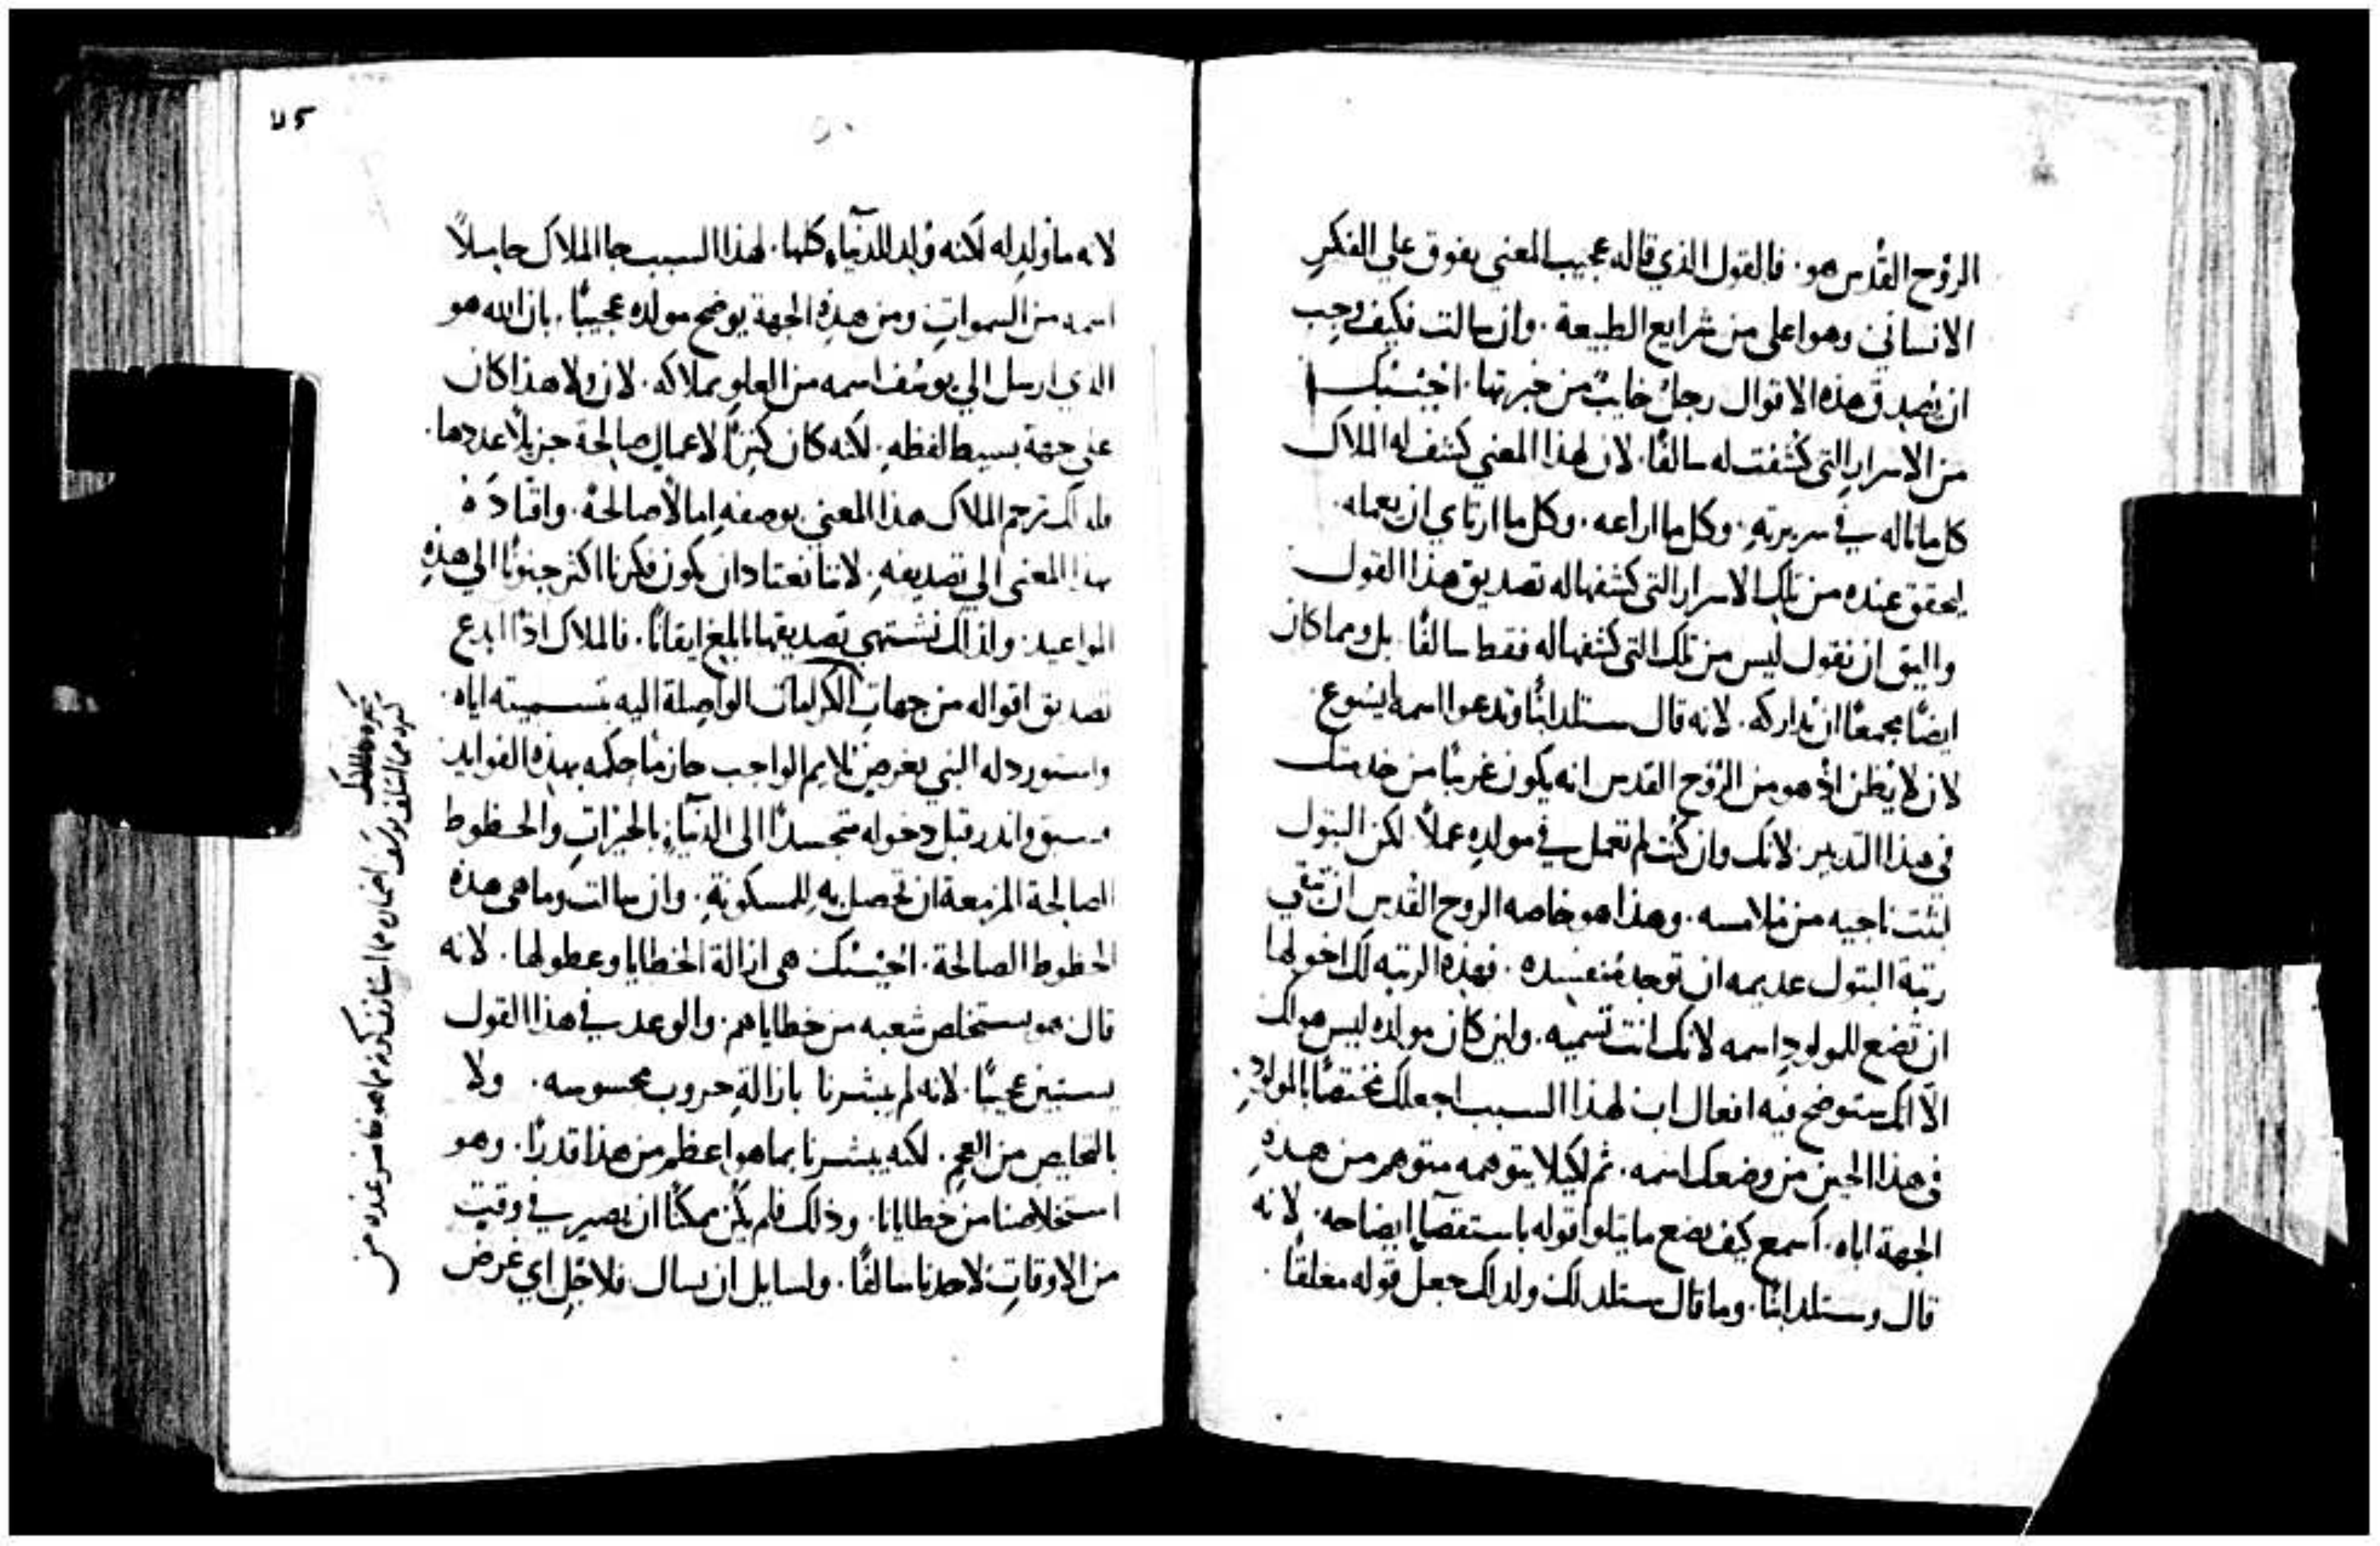 الروح القدس هو. فالقول الذي قاله عجيب المعني يفوق علي الفكر
الانساني وهو اعلي من شرايع الطبيعة. وان سالت فكيف وجب
ان يصدق هذه الاقوال رجل خايب من خبرتها. اجيبك
من الاسرار التي كشفت له سالفًا. لان لهذا المعني كشف له الملاك
كل ما ناله في سريرته. وكل ما اراعه. وكل ما ارتاي ان يعمله.
ليحقق عنده من تلك الاسرار التي كشفها له تصديق هذا القول
واليق ان نقول ليس من تلك التي كشفها له فقط سالفًا. بل ومما كان
ايضًا مجمعًا ان يداركه. لانه قال ستلد ابنًا وتدعوا اسمه ايسوع
لان لا يظن اذ هو من الروح القدس انه يكون غريبًا من خدمتك
في هذا التدبير. لانك وان كنت لم تعمل في مولده عملاً. لكن البتول
لبثت ناجيه من ملامسه. وهذا هو خاصه الروح القدس ان تبقي
رتبة البتول عديمه ان توجد مفسده. فهذه الرتبه لك اخولها
ان تضع للمولود اسمه لانك انت تسميه. ولين كان مولده ليس هو لك
الا انك ستوضح فيه افعال اب لهذا السبب اجعلك مختصًا بالمولود.
في هذا الحين من وضعك اسمه. ثم لكيلا يتوهمه متوهم من هذه
الجهة اباه. اسمع كيف يضع ما يتلوا قوله باستقصآ ايضاحه. لانه
قال وستلد ابنًا. وما قال ستلد لك ولدلك جعل قوله معلقًا.
٧٥
لانه ما ولد له لكنه ولد للدنيآء كلها. لهذا السبب جا الملاك حاملاً
اسمه من السموات ومن هذه الجهة يوضح مولده عجيبًا. بان الله هو
الذي ارسل الي يوسف اسمه من العلو بملاكه. لان ولا هذا كان
علي جهة بسيط لفظه. لكنه كان كنزًا لاعمال صالحة جزيلاً عددها.
فلذلك ترجم الملاك هذا المعني بوصفه امالاً صالحة. واقتاده
بهذا المعني الي تصديقه. لاننا نعتاد ان يكون فكرنا اكثر جنوحًا الي هذه
المواعيد. ولذلك نشتهي تصديقها ابلغ ايقانًا. فالملاك اذًا ابدع
تصديق اقواله من جهات الكرامات الواصلة اليه بتسميته اياه.
واستورد له النبي بغرض يلايم الواجب جازمًا حكمه بهذه الفوايد
وسبق وانذر قبل دخوله متجسدًا الي الدنيآء بالخيرات والحظوظ
الصالحة المزمعة ان تحصل به للمسكونة. وان سالت وما هي هذه
الحظوظ الصالحة. اجيبك هي ازالة الخطايا وعطولها. لانه
قال هو يستخلص شعبه من خطاياهم. والوعد في هذا القول
يستبين عجيبًا. لانه لم يبشرنا بازالة حروب محسوسه. ولا
بالتخليص من العجم. لكنه يبشرنا بما هو اعظم من هذا قدرًا. وهو
استخلاصنا من خطايانا. وذلك فلم يكن ممكنًا ان يصير في وقت
من الاوقات لاحدنا سالفًا. ولسايل ان يسال فلاجل اي غرض